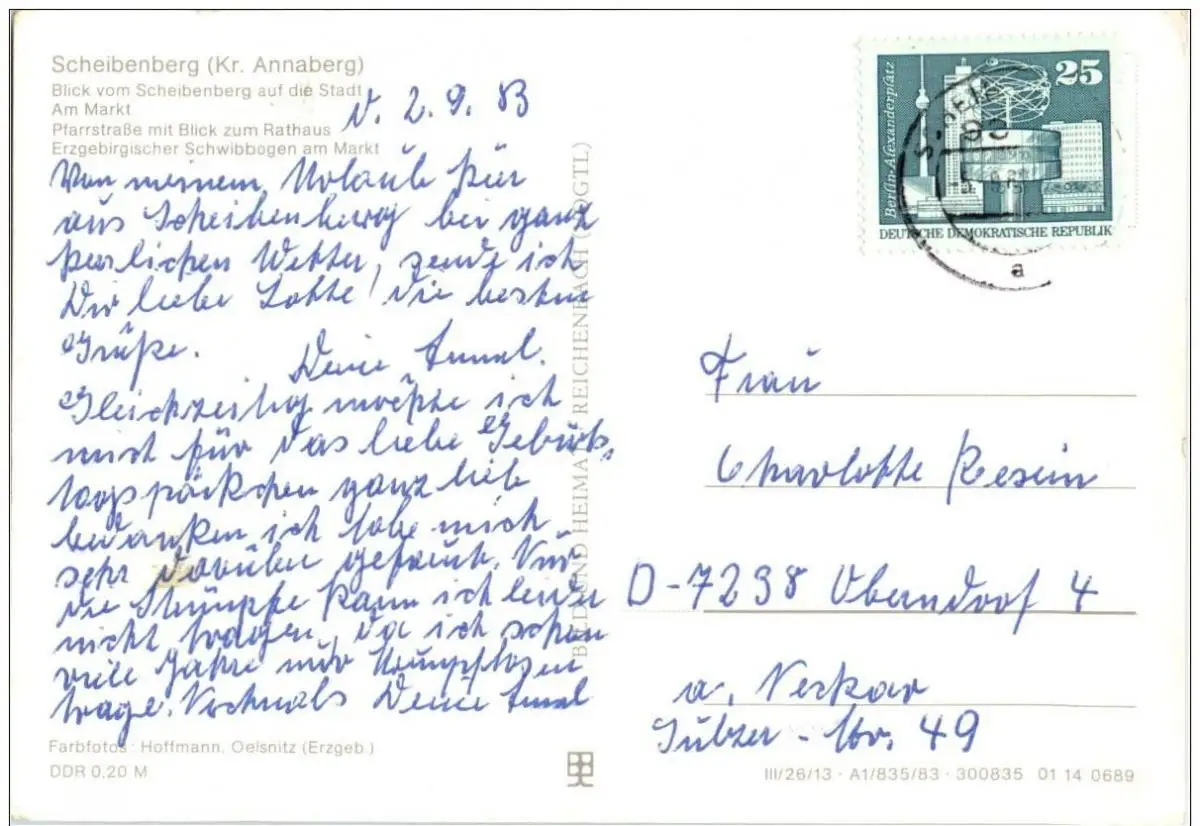 Scheibenberg (Kr. Annaberg)
Blick vom Scheibenberg auf die Stadt
Am Markt
Pfarrstraße mit Blick zum Rathaus
Erzgebirgischer Schwibbogen am Markt
d. 2. 9. 83
Von meinem Urlaub hier
aus Scheibenberg bei ganz
herlichen Wetter, sende ich
Dir liebe Lotte die besten
Grüße.
Deine
Gleichzeitig möchte ich
mich für das liebe Geburts,
tagspäckchen ganz lieb
bedanken ich habe mich
sehr darüber gefreut. Nur
die Strümpfe kann ich leider
nicht tragen, da ich schon
viele Jahre nur Strumpfhosen
trage. Nochmals Deine
Farbfotos: Hoffmann, Oelsnitz (Erzgeb.)
DDR 0,20 M
BILD UND HEIMAT REICHENBACH (VOGTL)
Berlin-Alexanderplatz
25
DEUTSCHE DEMOKRATISCHE REPUBLIK
a
Frau
Charlotte
D-7238 Oberndorf 4
a. Neckar
Sulzer - Str. 49
III/26/13 · A1/835/83 · 300835 01 14 0689